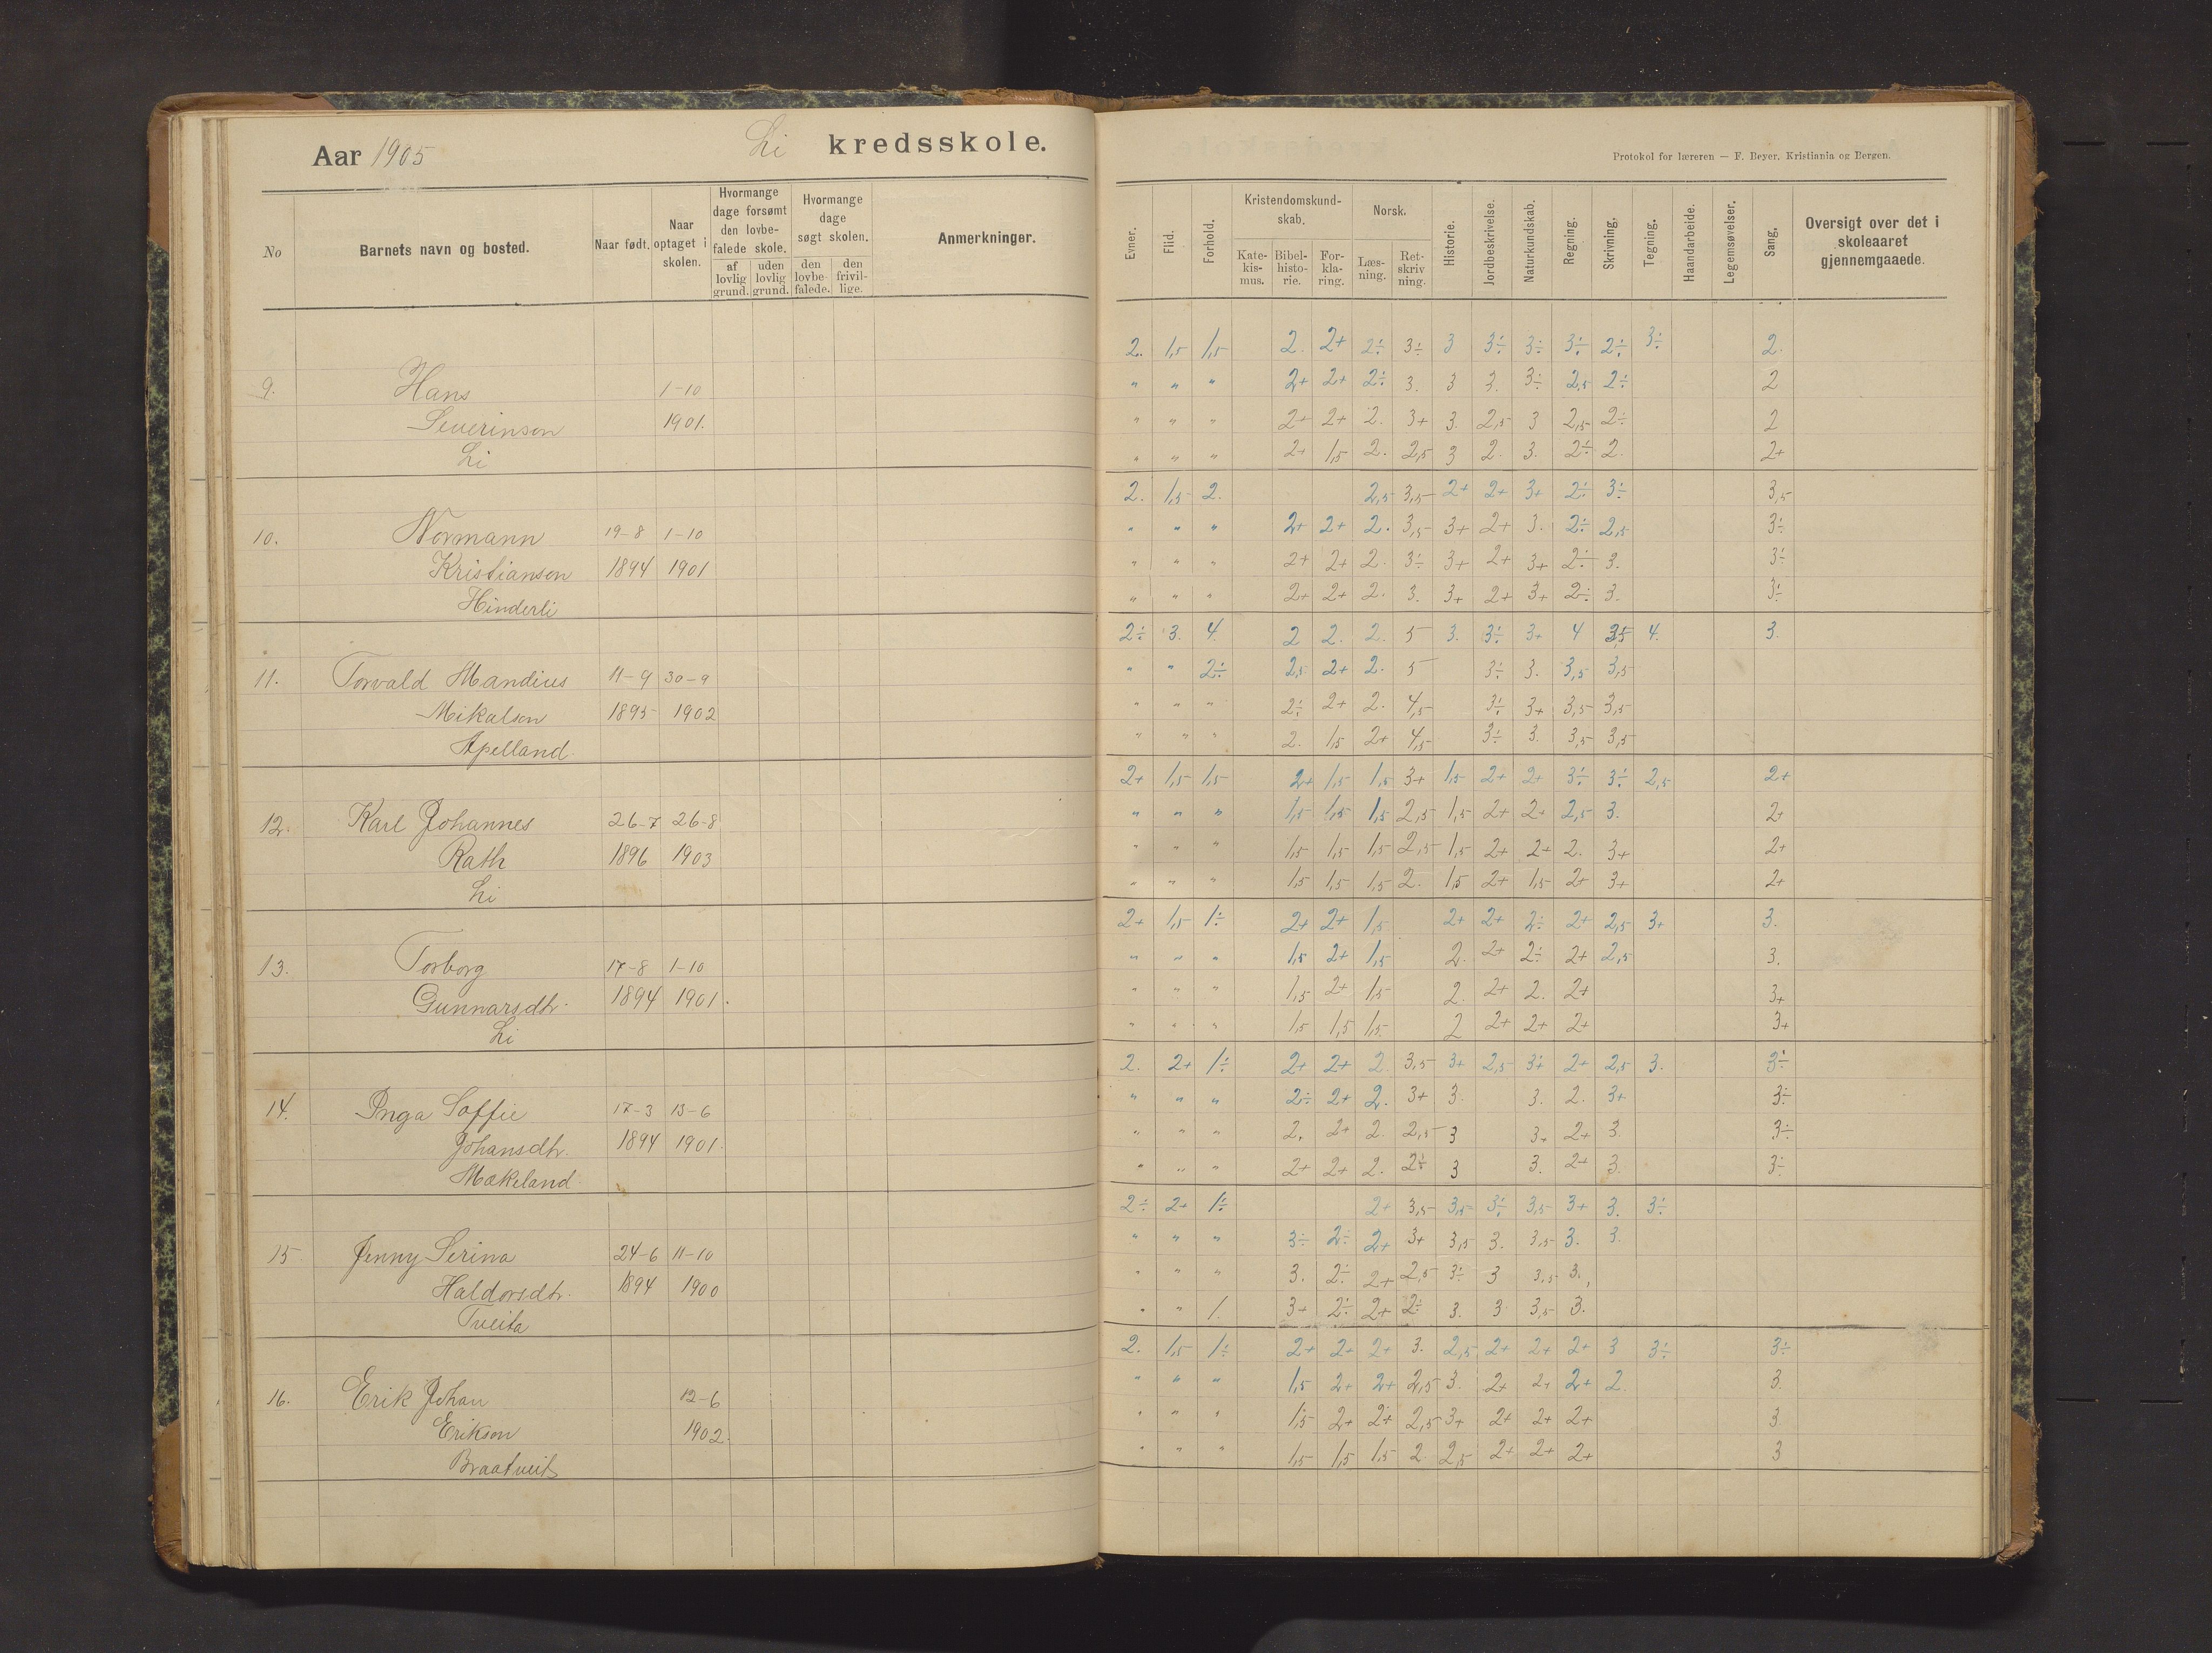 Aar 1905
Li kredsskole.
Protokol for læreren — F. Beyer, Kristiania og Bergen.
No
Barnets navn og bosted.
Naar født.
Naar optaget i skolen.
Hvormange dage forsømt den lovbefalede skole.
af lovlig grund.
uden lovlig grund.
Hvormange dage søgt skolen.
den lovbefalede.
den frivillige.
Anmerkninger.
Evner.
Flid.
Forhold.
Kristendomskundskab.
Katekismus.
Bibelhistorie.
Forklaring.
Norsk.
Læsning.
Retskrivning.
Historie.
Jordbeskrivelse.
Naturkundskab.
Regning.
Skrivning.
Tegning.
Haandarbeide.
Legemsøvelser.
Sang.
Oversigt over det i skoleaaret gjennemgaaede.
2. 1,5 1,5 2. 2+ 2÷ 3÷ 3 3÷ 3÷ 3÷ 2÷ 3÷ 2.
9. Hans 1-10 " " " 2+ 2+ 2÷ 3. 3 3. 3÷ 2,5 2÷ 2
Severinson 1901. " " " 2+ 2+ 2. 3+ 3. 2,5 3 2,5 2÷ 2
Li " " " 2+ 1,5 2. 2,5 3 2. 3. 2÷ 2. 2+
2. 1,5 2. 2,5 3,5 2+ 2+ 3+ 2÷ 3÷ 3,5
10. Normann 19-8 1-10 " " " 2+ 2+ 2. 3,5 3+ 2+ 3. 2÷ 2,5 3÷
Kristianson 1894 1901 " " " 2+ 2+ 2. 3÷ 3+ 2+ 3+ 2÷ 3. 3÷
Hinderli " " " 2+ 2+ 2. 3. 3+ 2+ 3+ 2÷ 3. 3÷
2÷ 3. 4. 2 2. 2. 5 3. 3÷ 3+ 4 3,5 4. 3.
11. Torvald Mandius 11-9 30-9 " " 2÷ 2,5 2+ 2. 5 3÷ 3. 3,5 3,5
Mikalson 1895 1902 " " " 2÷ 2+ 2. 4,5 3÷ 3+ 3,5 3,5
Apelland. " " " 2. 1,5 2+ 4,5 3÷ 3. 3,5 3,5
2+ 1,5 1,5 2+ 1,5 1,5 3+ 1,5 2+ 2+ 3÷ 3÷ 2,5 2+
12. Karl Johannes 26-7 26-8 " " " 1,5 1,5 1,5 2,5 1,5 2+ 2+ 2,5 3. 2+
Rath 1896 1903 " " " 1,5 1,5 1,5 2,5 1,5 2+ 2+ 2. 3+ 2+
Li " " " 1,5 1,5 1,5 2. 1,5 2+ 1,5 2+ 3+ 2+
2+ 1,5 1÷ 2+ 2+ 1,5 2+ 2+ 2÷ 2+ 2,5 3+ 3.
13. Torborg 17-8 1-10 " " " 1,5 2+ 1,5 2. 2+ 2÷ 2+ 2,5 3.
Gunnarsdtr. 1894 1901. " " " 1,5 2+ 1,5 2. 2+ 2. 2+ 3+
Li " " " 1,5 1,5 1,5 2 2+ 2+ 2+ 3+
2. 2+ 1÷ 2+ 2+ 2 3,5 3+ 2,5 3+ 2+ 2,5 3. 3÷
14. Inga Soffie 17-3 13-6 " " " 2÷ 2+ 2. 3+ 3. 3. 2. 3+ 3÷
Johansdtr. 1894 1901. " " " 2. 2+ 2. 2,5 3 3+ 2+ 3. 3÷
Mækeland. " " " 2+ 2+ 2. 2÷ 3 3. 2+ 3. 3÷
2÷ 2+ 1÷ 2+ 3,5 3,5 3÷ 3,5 3+ 3. 3÷
15 Jenny Serina 24-6 11-10 " " " 3÷ 2÷ 2+ 3+ 3,5 3. 3,5 3. 3.
Haldorsdtr. 1894 1900 " " " 3. 2÷ 2+ 2,5 3÷ 3 3,5 3.
Tveita " " 1. 3+ 2÷ 2+ 2÷ 3. 3 3,5 3.
2. 1,5 1÷ 2+ 2+ 2+ 3. 2,5 2+ 2+ 2+ 3 3÷ 3÷
16. Erik Johan 12-6 " " " 1,5 2+ 2+ 2,5 3. 2+ 2+ 2+ 2. 3.
Erikson 1902. " " " 1,5 2+ 2+ 2,5 3+ 2+ 2+ 2+ 3
Braatveit " " " 1,5 1,5 1,5 2. 2,5 2+ 2+ 2+ 3